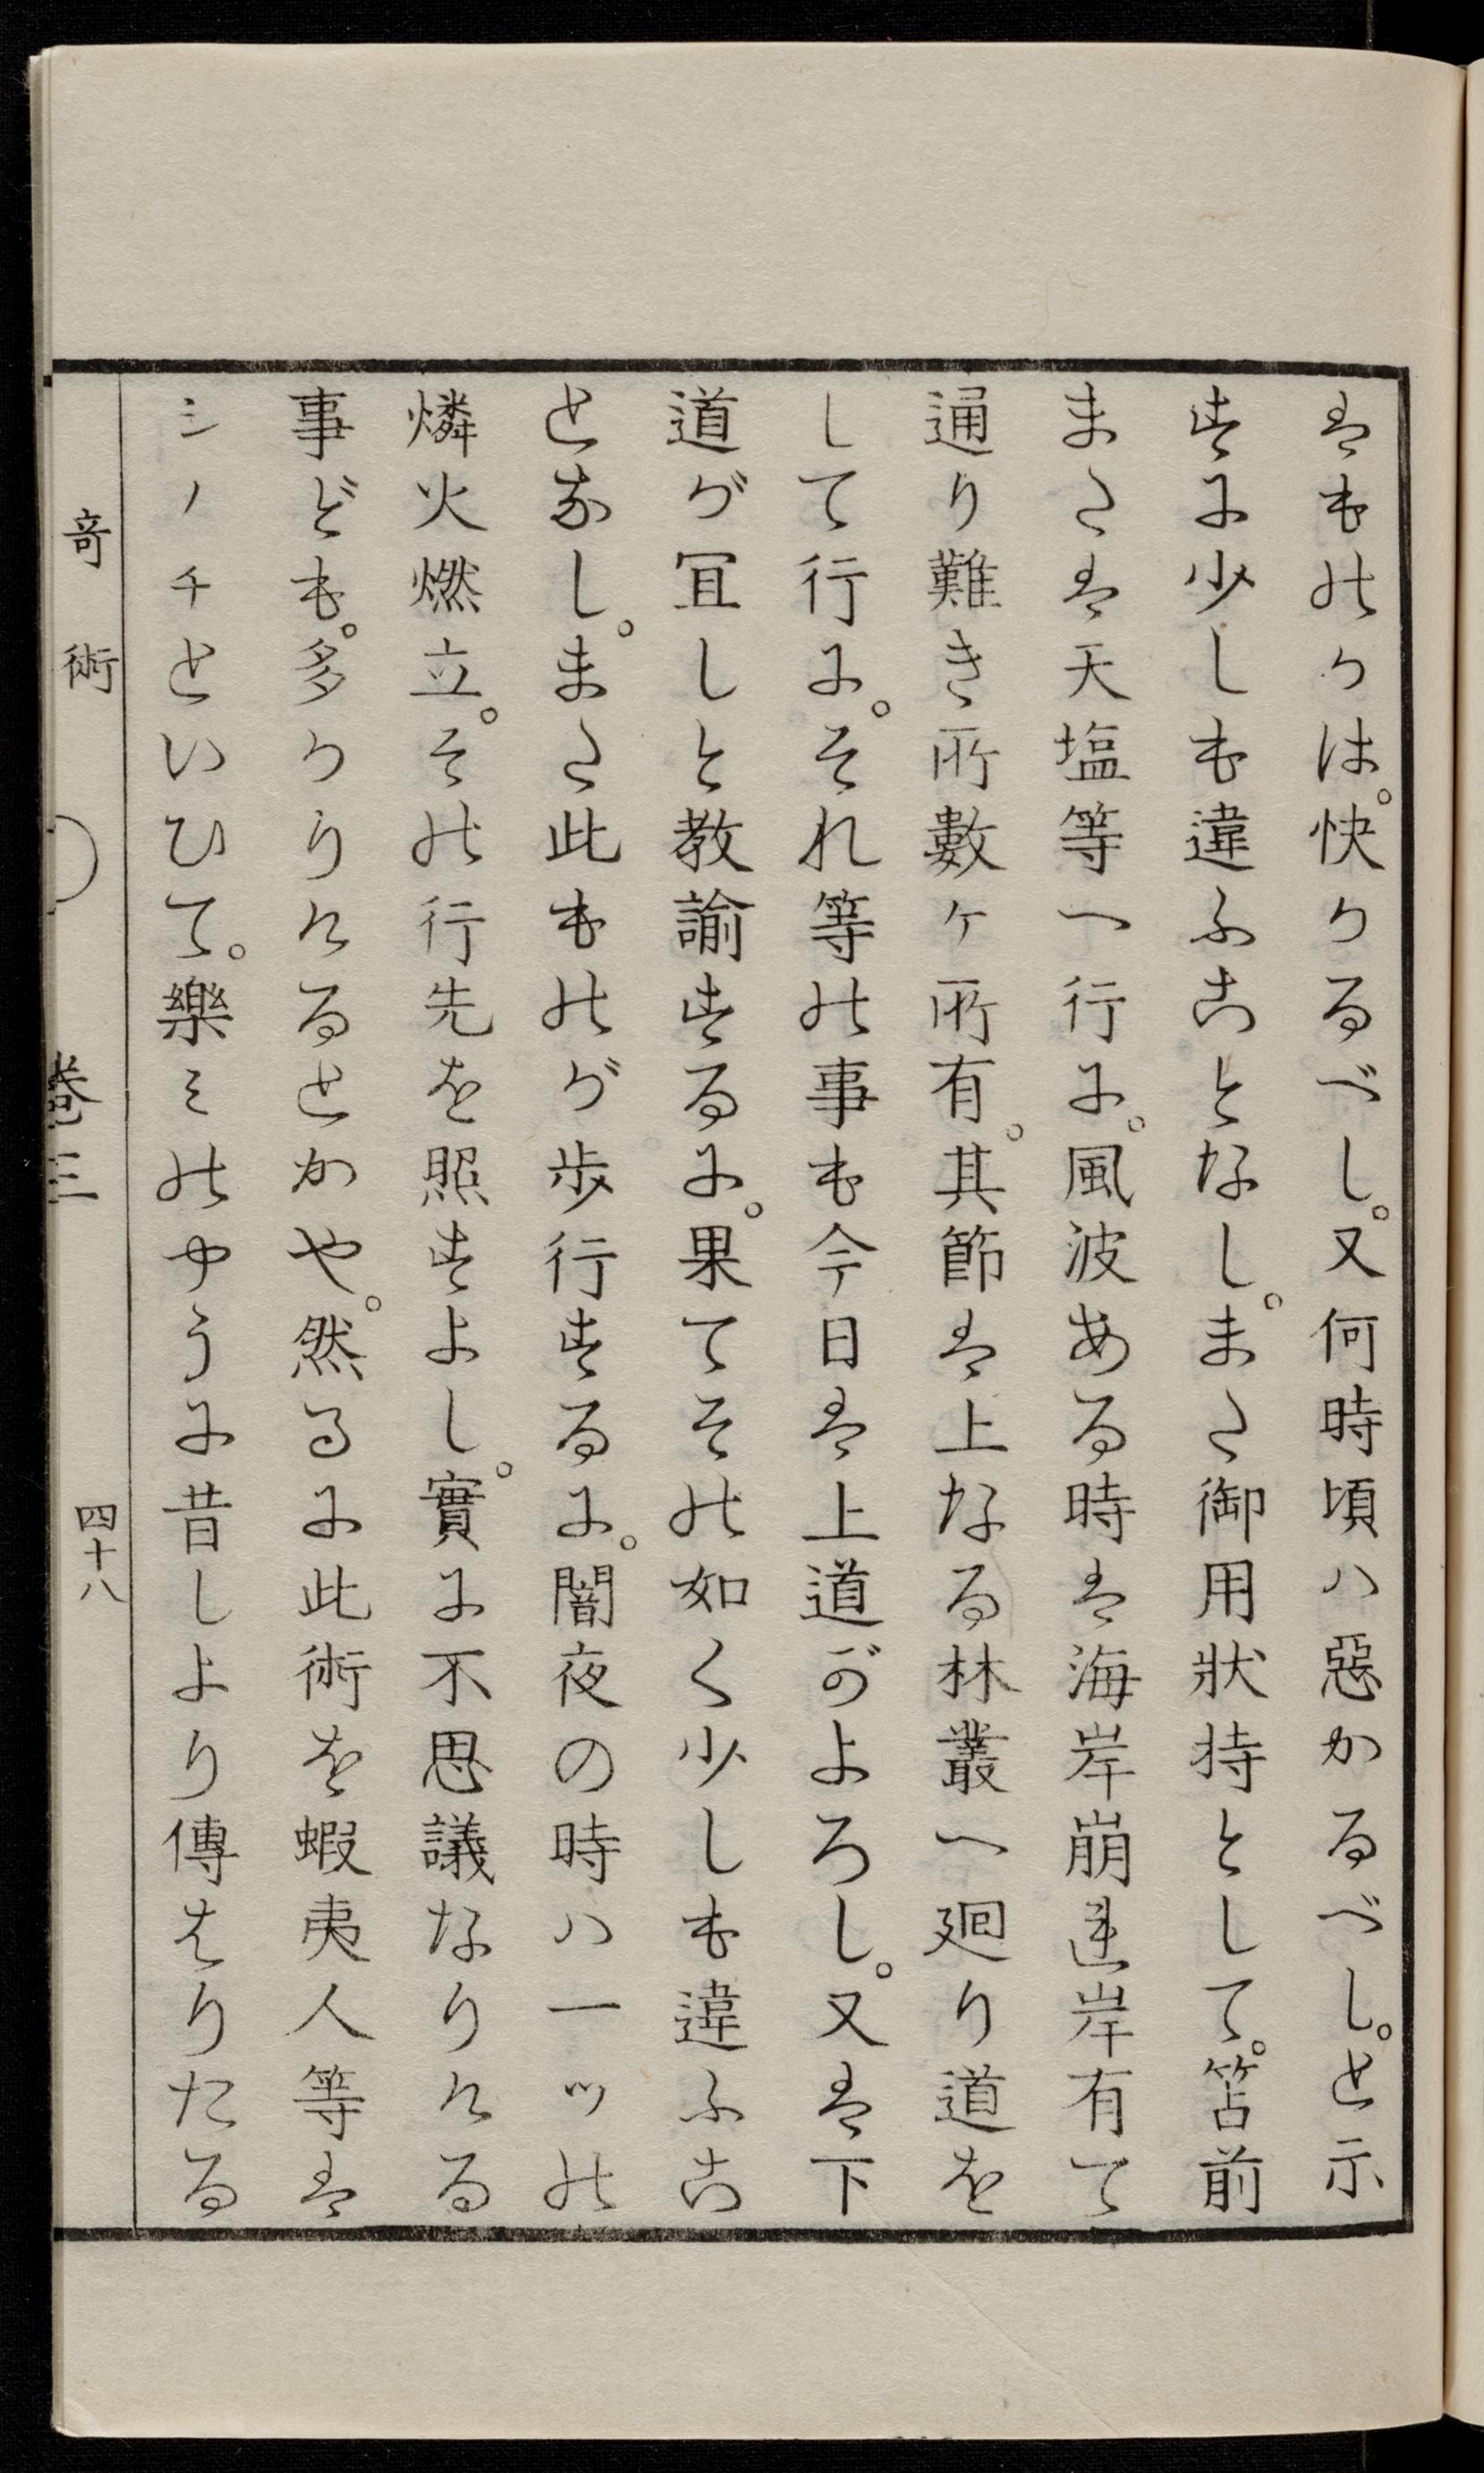 はものかは。快かるべし。又何時頃ハ惡かるべし。と示
すに少しも違ふことなし。また御用狀持として。笘前
または天塩等へ行に。風波ある時は海岸崩連岸有て
通り難き所數ヶ所有。其節は上なる林叢へ廻り道を
して行に。それ等の事も今日は上道がよろし。又は下
道が冝しと教諭するに。果てその如く少しも違ふこ
となし。また此ものが歩行するに。闇夜の時ハ一ッの
燐火燃立。その行先を照すよし。實に不思議なりける
事ども。多かりけるとかや。然るに此術を蝦夷人等は
シノチといひて。樂ミのやうに昔しより傳はりたる
竒術 巻三 四十八